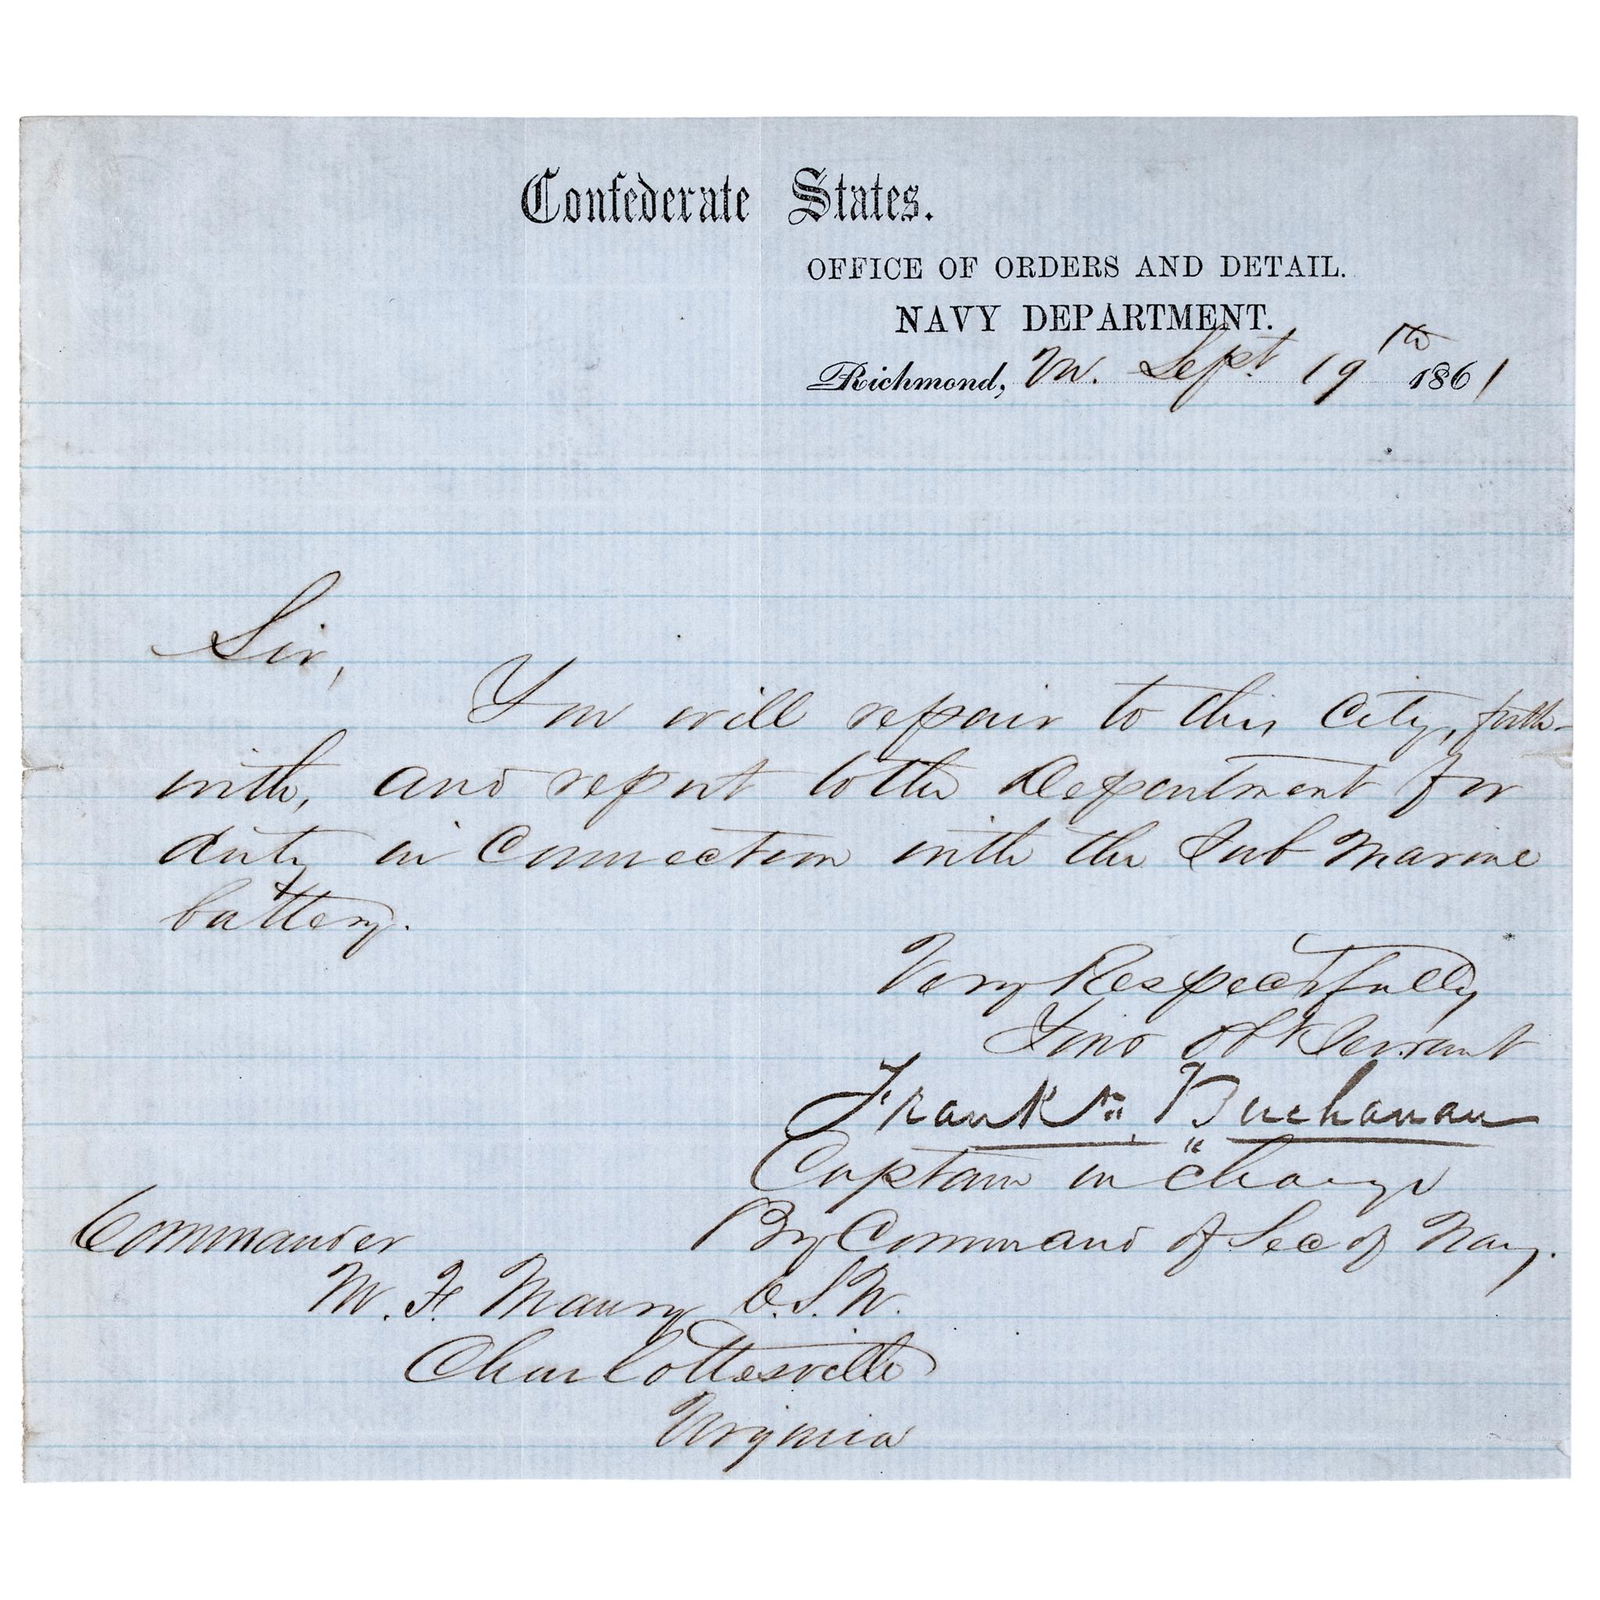 Confederate States.
OFFICE OF ORDERS AND DETAIL.
NAVY DEPARTMENT.
Richmond, Va. Sept 19th 1861
Sir,
You will repair to this City, forth-
with, and report to the Department for
duty in Connection with the Sub Marine
battery.
Very Respectfully
Your Obt Servant
Frank<sup>n</sup> Buchanan
Captain in Charge
By Command of Sec of Navy.
Commander
M. F. Maury C.S.N.
Charlottesville
Virginia